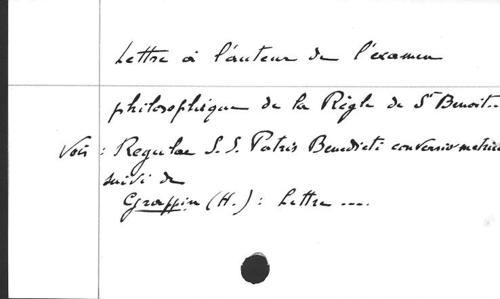 Lettre à l'auteur de l'examen
philosophique de la Règle de St Benoit..
Voir : Regulae S. S. Patris Benedicti conversio metrica
suivi de
Grappin (H.) : Lettre ....